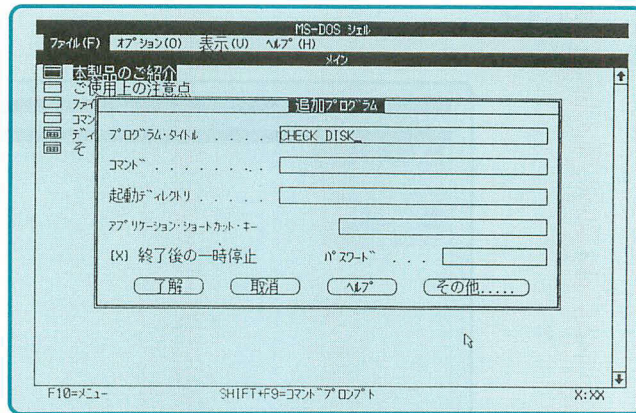 MS-DOS ｼｪﾙ
ﾌｧｲﾙ(F) ｵﾌﾟｼｮﾝ(O) 表示(U) ﾍﾙﾌﾟ(H)
ﾒｲﾝ
本製品のご紹介
ご使用上の注意点
ﾌｧｲ
ｺﾏﾝ
ﾃﾞｨ
そ
追加ﾌﾟﾛｸﾞﾗﾑ
ﾌﾟﾛｸﾞﾗﾑ･ﾀｲﾄﾙ . . . . . CHECK DISK_
ｺﾏﾝﾄﾞ . . . . . . . . .
起動ﾃﾞｨﾚｸﾄﾘ . . . . . .
ｱﾌﾟﾘｹｰｼｮﾝ･ｼｮｰﾄｶｯﾄ･ｷｰ
[X] 終了後の一時停止 ﾊﾟｽﾜｰﾄﾞ . . .
了解 取消 ﾍﾙﾌﾟ その他.....
F10=ﾒﾆｭｰ SHIFT+F9=ｺﾏﾝﾄﾞﾌﾟﾛﾝﾌﾟﾄ X:XX